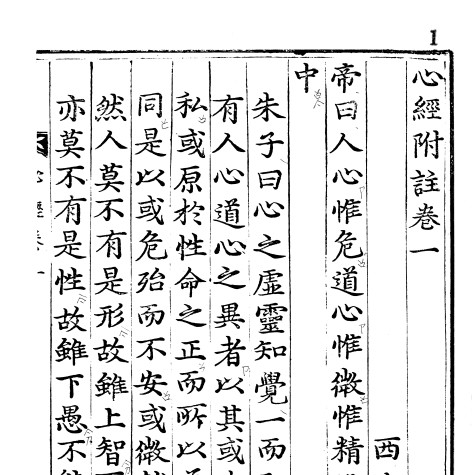 1
心經附註卷一
西
帝曰人心惟危道心惟微惟精
中
朱子曰心之虛靈知覺一而
有人心道心之異者以其或
私或原於性命之正而所以
同是以或危殆而不安或微
然人莫不有是形故雖上智
亦莫不有是性故雖下愚不
心經卷一